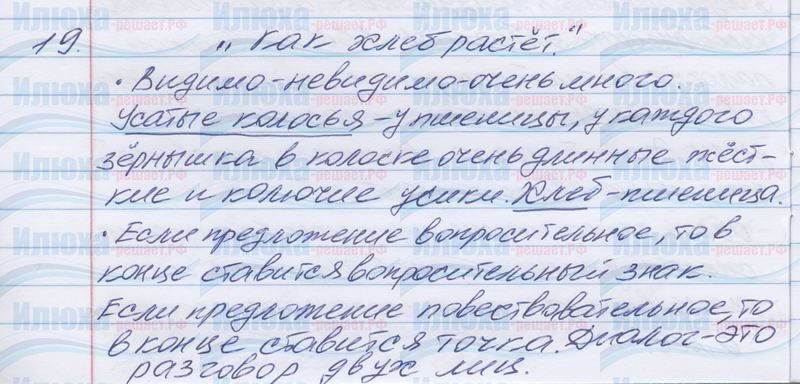 19. „Как хлеб растёт."
• Видимо-невидимо-очень много.
Усатые колосья-у пшеницы, у каждого
зёрнышка в колоске очень длинные жёст-
кие и колючие усики. Хлеб-пшеница.
• Если предложение вопросительное, то в
конце ставится вопросительный знак.
Если предложение повествовательное, то
в конце ставится точка. Диалог-это
разговор двух лиц.